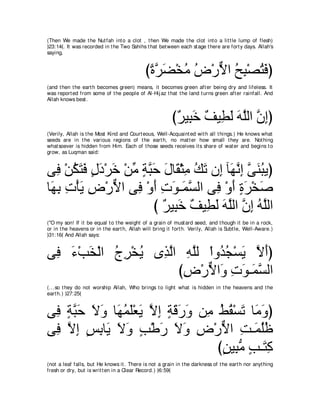 (Then We made the Nutfah into a clot , then We made the clot into a little lump of flesh)
)23:14(. It was recorded in the Two Sahihs that between each stage there are forty days. Allah's
saying,
(فَتُصْبِحُ الاٌّرْضُ مُخْضَرَّةً)
(and then the earth becomes green) means, it becomes green after being dry and lifeless. It
was reported from some of the people of Al-Hijaz that the land turns green after rainfall. And
Allah knows best.
(إِنَّ اللَّهَ لَطِيفٌ خَبِيرٌ)
(Verily, Allah is the Most Kind and Courteous, Well-Acquainted with all things.) He knows what
seeds are in the various regions of the earth, no matter how small they are. Nothing
whatsoever is hidden from Him. Each of those seeds receives its share of water and begins to
grow, as Luqman said:
(يبُنَىَّ إِنَّهَآ إِن تَكُ مِثْقَالَ حَبَّةٍ مِّنْ خَرْدَلٍ فَتَكُنْ فِى
صَخْرَةٍ أَوْ فِى السَّمَـوَتِ أَوْ فِى الاٌّرْضِ يَأْتِ بِهَا
اللَّهُ إِنَّ اللَّهَ لَطِيفٌ خَبِيرٌ )
("O my son! If it be equal to the weight of a grain of mustard seed, and though it be in a rock,
or in the heavens or in the earth, Allah will bring it forth. Verily, Allah is Subtle, Well-Aware.)
)31:16( And Allah says:
(أَلاَّ يَسْجُدُواْ للَّهِ الَّذِى يُخْرِجُ الْخَبْءَ فِى
السَّمَـوَتِ وَالاٌّرْضِ)
(...so they do not worship Allah, Who brings to light what is hidden in the heavens and the
earth.) )27:25(
(وَمَا تَسْقُطُ مِن وَرَقَةٍ إِلاَّ يَعْلَمُهَا وَلاَ حَبَّةٍ فِى
ظُلُمَـتِ الاٌّرْضِ وَلاَ رَطْبٍ وَلاَ يَابِسٍ إِلاَّ فِى
كِتَـبٍ مُّبِينٍ)
(not a leaf falls, but He knows it. There is not a grain in the darkness of the earth nor anything
fresh or dry, but is written in a Clear Record.) )6:59(